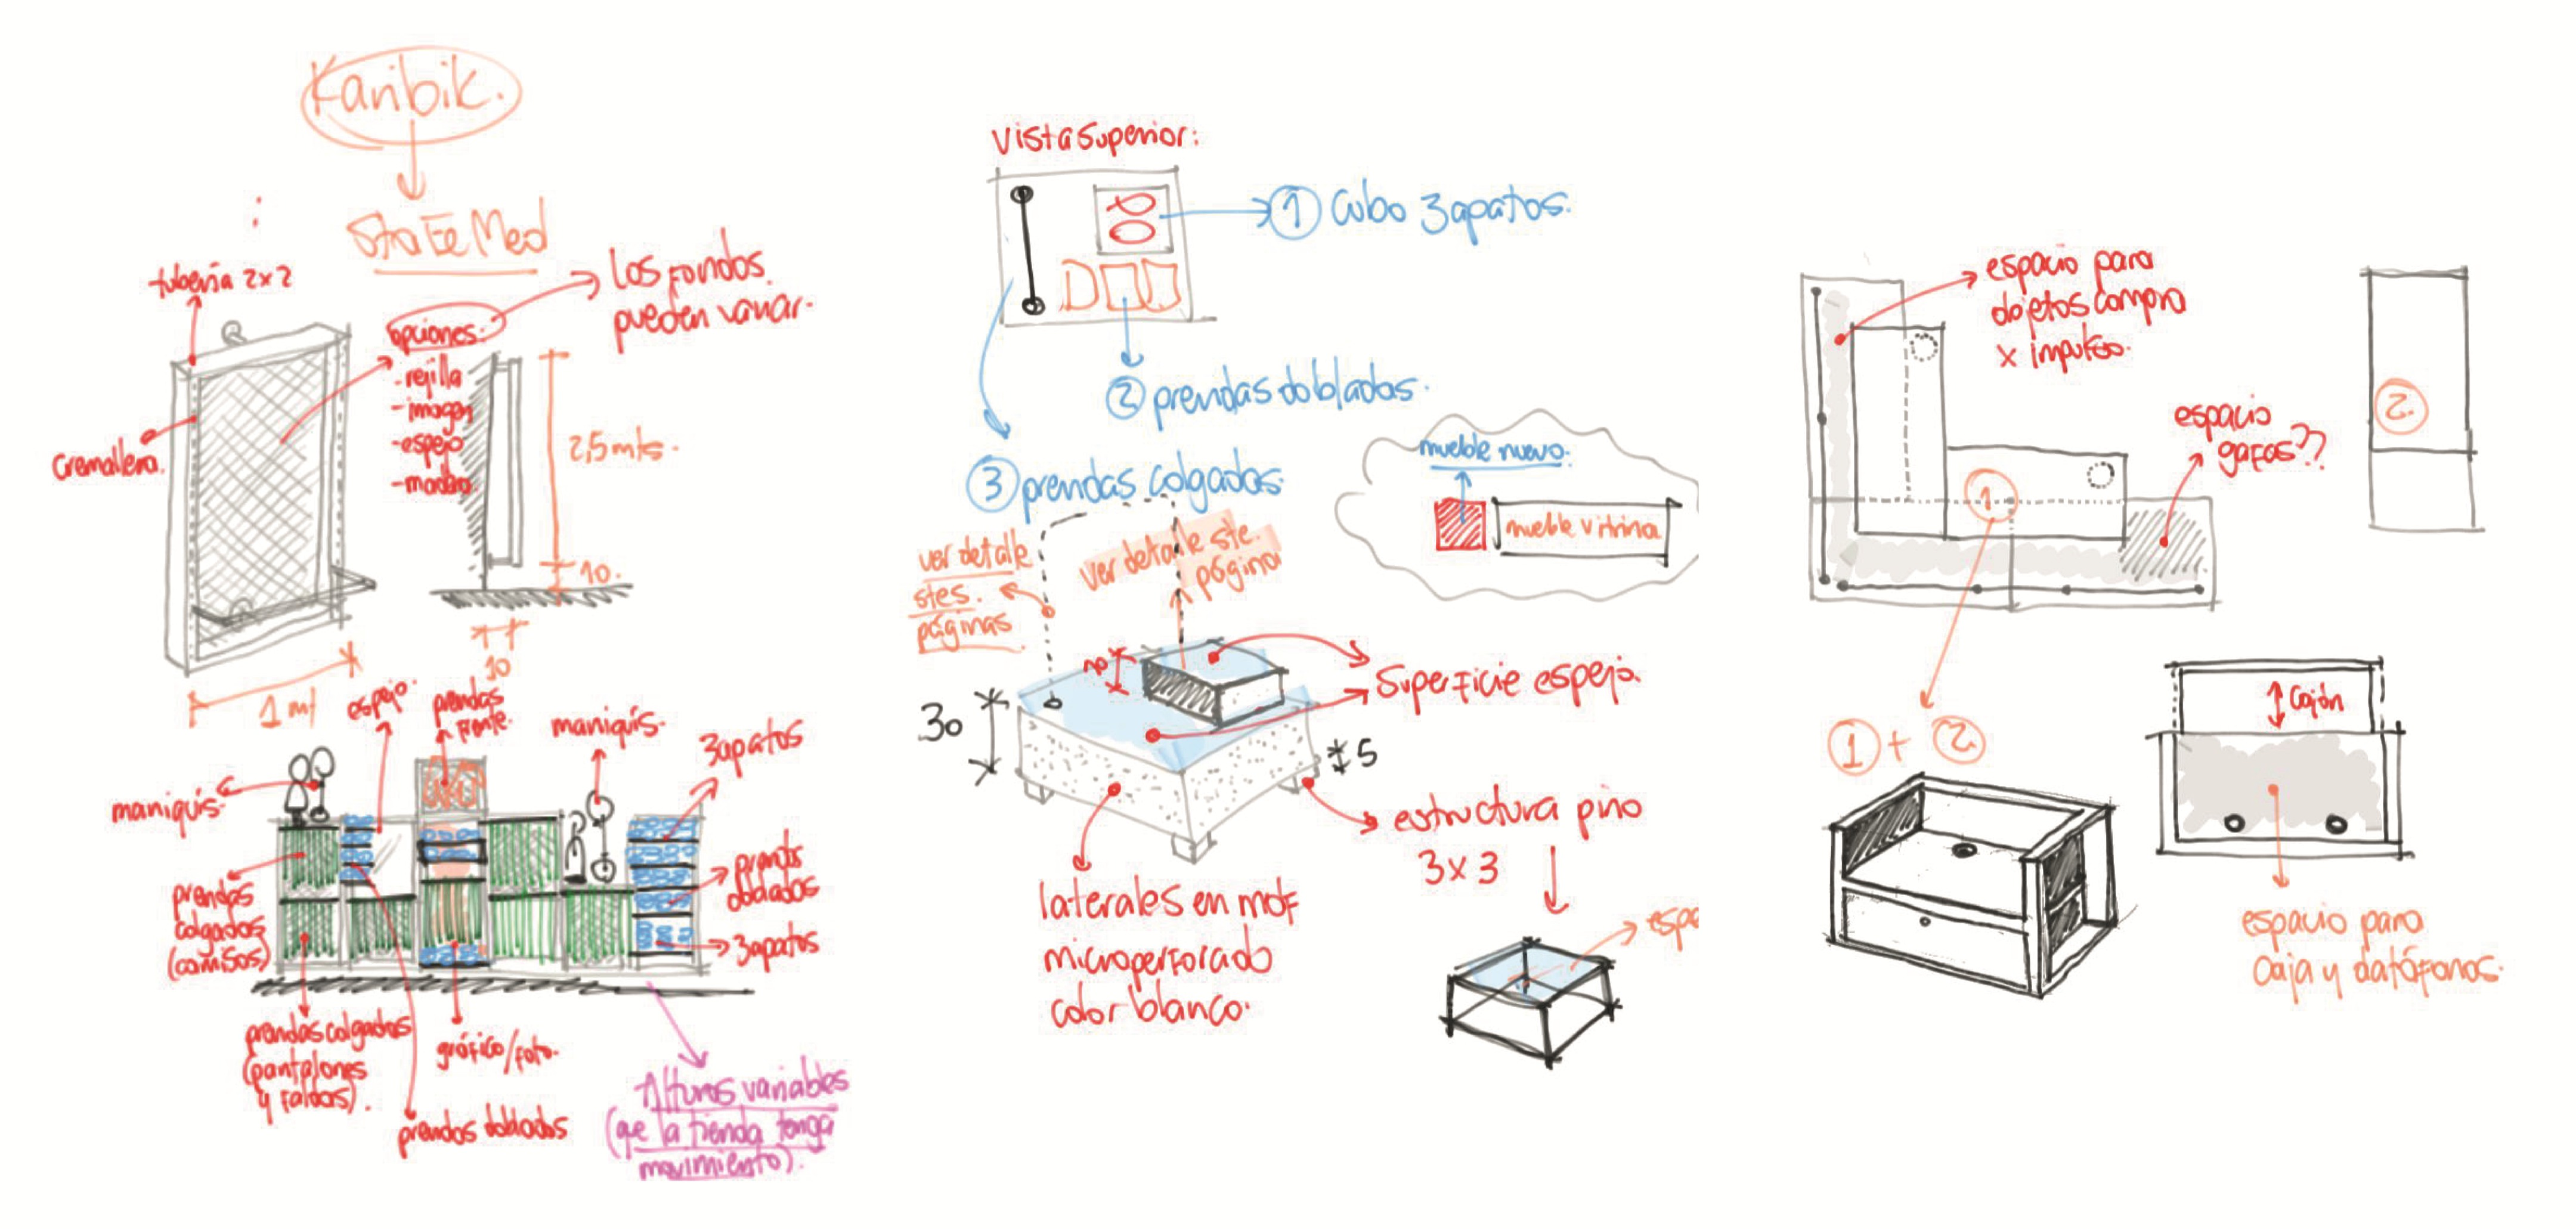 Karibik.
StaTEMed
:
tubería 2x2
cremallera.
opciones:
- rejilla
- imagen
- espejo
- madera.
Los fondos
pueden variar.
2,5 mts.
10.
10
1 mt
maniquís.
espejo.
prendas
frente.
maniquís.
zapatos
prendas
dobladas
zapatos
prendas
colgadas
(camisas)
prendas colgadas
(pantalones
y faldas).
gráfico/foto.
prendas dobladas
Alturas variables
(que la tienda tenga
movimiento).
Vista superior:
1 cubo zapatos.
2 prendas dobladas.
3 prendas colgadas.
mueble nuevo.
mueble vitrina
ver detalle
stes.
páginas
ver detalle ste.
página
30
5
Superficie espejo.
estructura pino
3x3
laterales en mdf
microperforado
color blanco.
espa
espacio para
objetos compra
x impulso.
espacio
gafas??
1
2.
1 + 2
cajón
espacio para
caja y datáfonos.